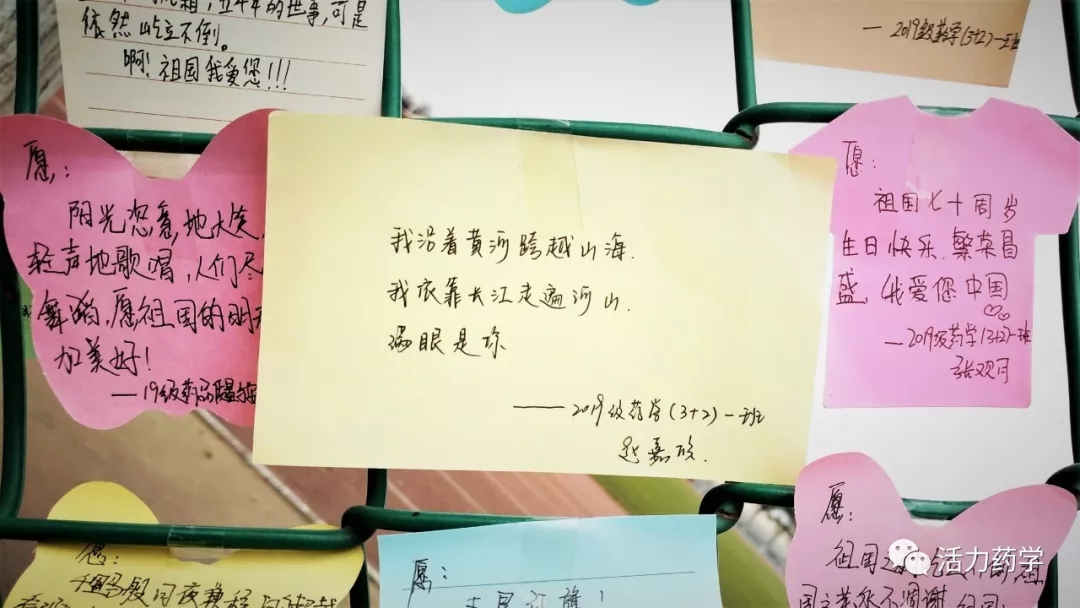 五千年的世事,可是
依然屹立不倒。
啊!祖国我爱您!!!
—2019级药学(3+2)一班
愿:
阳光恣意地大笑,
轻声地歌唱,人们尽
舞蹈,愿祖国的明天
加美好!
—19级药品
我沿着黄河跨越山海.
我依靠长江走遍河山.
满眼是你
——2019级药学(3+2)一班
赵嘉欣.
愿:
祖国七十周岁
生日快乐.繁荣昌
盛,我爱您中国
—2019级药学(3+2)一班
张观月
愿:
愿:
愿:
祖国
永不凋谢
活力药学